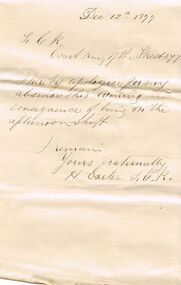 Dec 12th 1877
To C. R.
Court King of the Forest 277
I hereby apologise for my
absence this evening in
consequence of being on the
afternoon shift
I remain
Yours fraternally
H Exeter S.C.R.